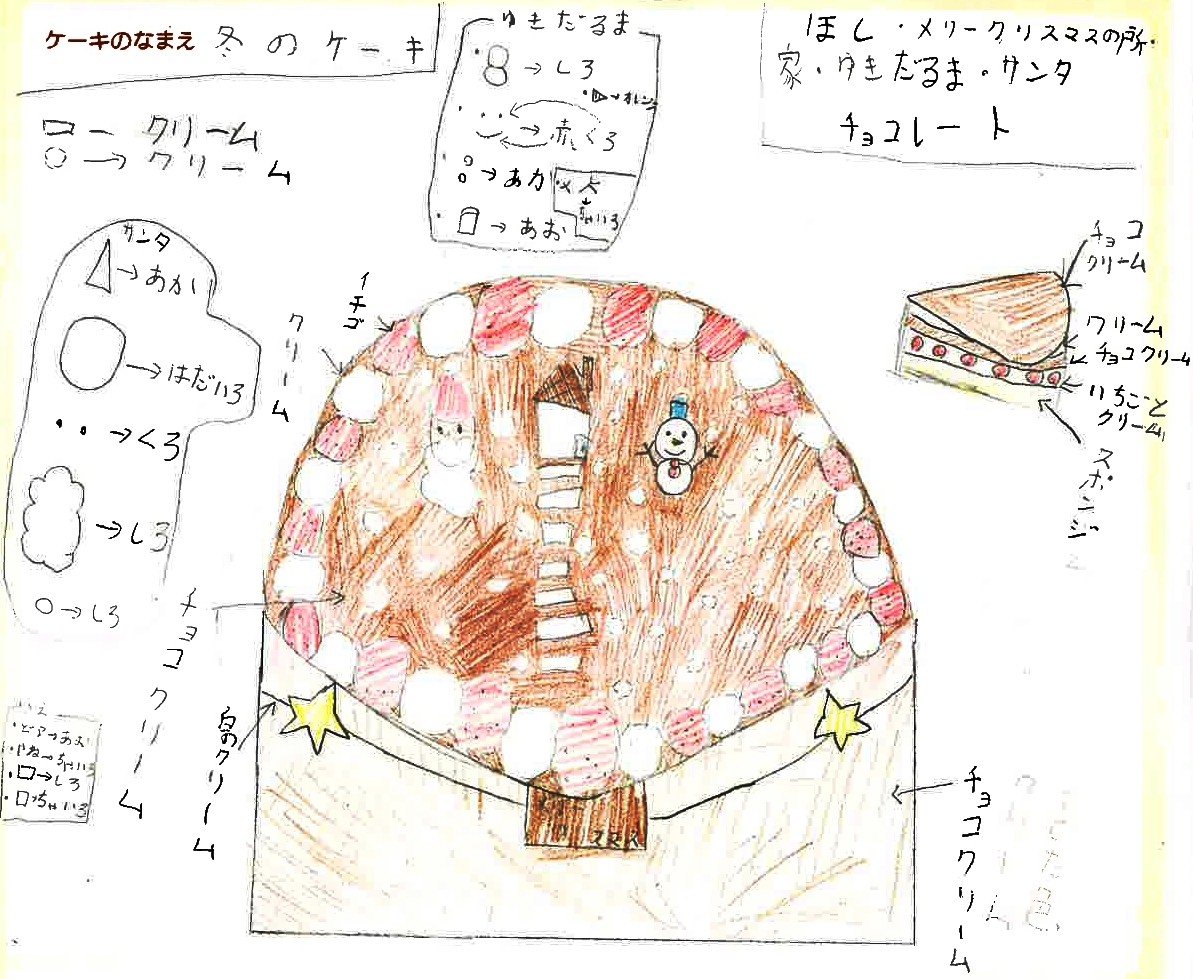 ケーキのなまえ 冬のケーキ
ゆきだるま
→しろ
→オレンジ
→赤、くろ
→あか
→あお
大
ちゃいろ
ほし・メリークリスマスの所・
家・ゆきだるま・サンタ
チョコレート
クリーム
→クリーム
サンタ
→あか
→はだいろ
→くろ
→しろ
→しろ
イチゴ
クリーム
チョコクリーム
白のクリーム
・ドア→あお
・やね→ちゃいろ
→しろ
→ちゃいろ
チョコ
クリーム
クリーム
チョコクリーム
いちごと
クリーム
スポンジ
スマス
チョコクリーム